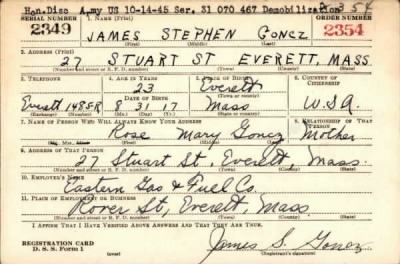 Hon.Disc Army US 10-14-45 Ser. 31 070 467 Demobilization 354
SERIAL NUMBER 1. NAME (Print) ORDER NUMBER
2349 JAMES STEPHEN GONCZ 2354
(First) (Middle) (Last)
2. ADDRESS (Print)
27 STUART ST EVERETT, MASS.
(Number and street or R. F. D. number) (Town) (County) (State)
3. TELEPHONE 4. AGE IN YEARS 5. PLACE OF BIRTH 6. COUNTRY OF CITIZENSHIP
23 Everett
DATE OF BIRTH (Town or county)
Everett 1485R 8 31 17 Mass U.S.A.
(Exchange) (Number) (Mo.) (Day) (Yr.) (State or country)
7. NAME OF PERSON WHO WILL ALWAYS KNOW YOUR ADDRESS 8. RELATIONSHIP OF THAT PERSON
Rose Mary Goncz Mother
(Mr., Mrs., Miss) (First) (Middle) (Last)
9. ADDRESS OF THAT PERSON
27 Stuart St, Everett, Mass.
(Number and street or R. F. D. number) (Town) (County) (State)
10. EMPLOYER'S NAME
Eastern Gas & Fuel Co.
11. PLACE OF EMPLOYMENT OR BUSINESS
Rover St, Everett, Mass
(Number and street or R. F. D. number) (Town) (County) (State)
I AFFIRM THAT I HAVE VERIFIED ABOVE ANSWERS AND THAT THEY ARE TRUE.
REGISTRATION CARD
D. S. S. Form 1 James S. Goncz
(over) (Registrant's signature)